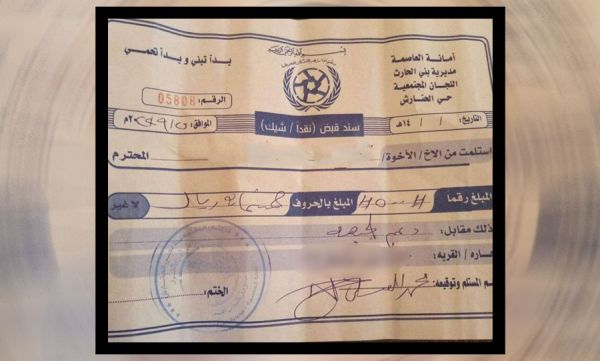 بسم الله الرحمن الرحيم
أمانة العاصمة
مديرية بني الحارث
اللجان المجتمعية
حي الحتارش
يداً تبني و يداً تحمي
الرقم: 05808
التاريخ: / / ١٤هـ
سند قبض (نقداً / شيك)
الموافق: م
استلمت من الاخ / الأخوة / المحترم
المبلغ رقما #٥٠٠# المبلغ بالحروف خمسمائة ريال لا غير
وذلك مقابل: دعم الجبهة
حاره / القريه :
م المستلم وتوقيعه:
الختم: